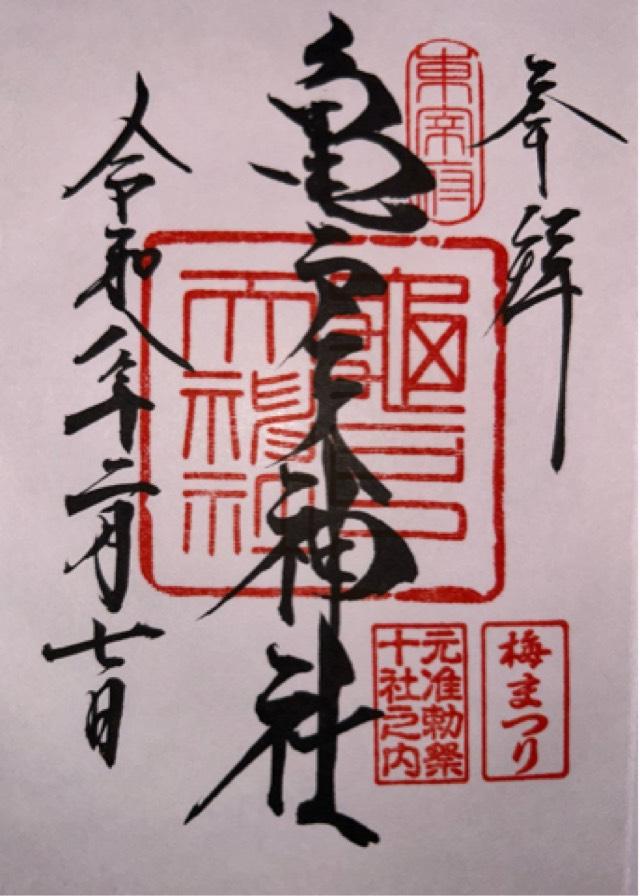 奉拝
東宰府
亀戸天神社
亀戸天神社
梅まつり
元准勅祭
十社之内
令和八年二月七日